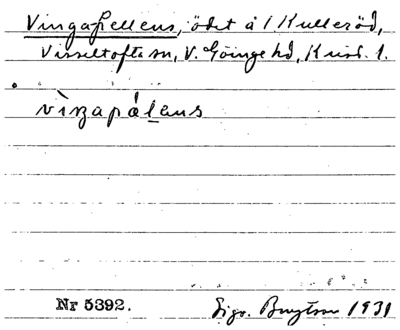 Vingapellens, ödet å 1 Kulleröd,
Visseltofta sn, V. Göinge hd, Krist. l.
vìŋapálens
Nr 5392. Sigv. 1931